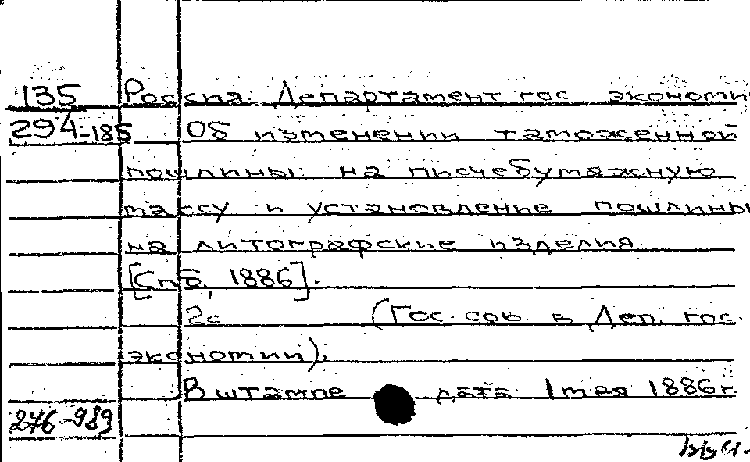 135 Россия. Департамент гос. экономи
294-185 Об изменении таможенной
пошлины на писчебумажную
массу и установление пошлины
на литографские изделия
[Спб, 1886].
2с (Гос. сов. в Деп. гос.
экономии).
В штампе дата 1 мая 1886г.
276-989